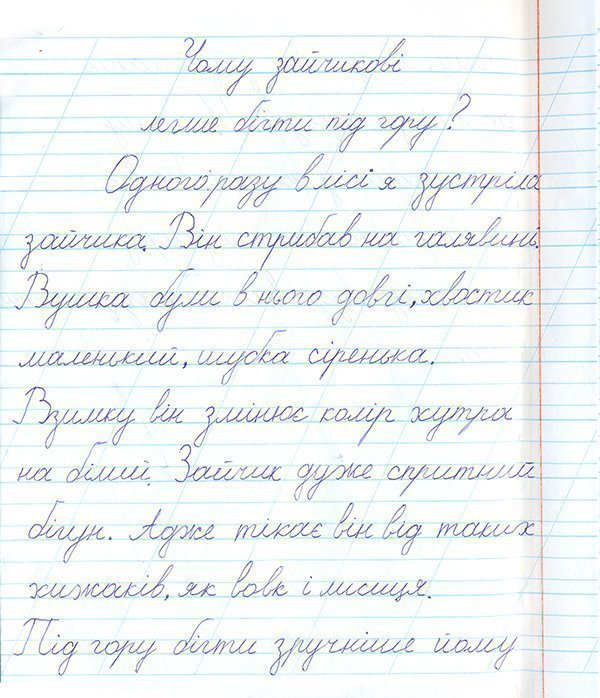 Чому зайчикові
легше бігти під гору?
Одного разу в лісі я зустріла
зайчика. Він стрибав на галявині.
Вушка були в нього довгі, хвостик
маленький, шубка сіренька.
Взимку він змінює колір хутра
на білий. Зайчик дуже спритний
бігун. Адже тікає він від таких
хижаків, як вовк і лисиця.
Під гору бігти зручніше йому